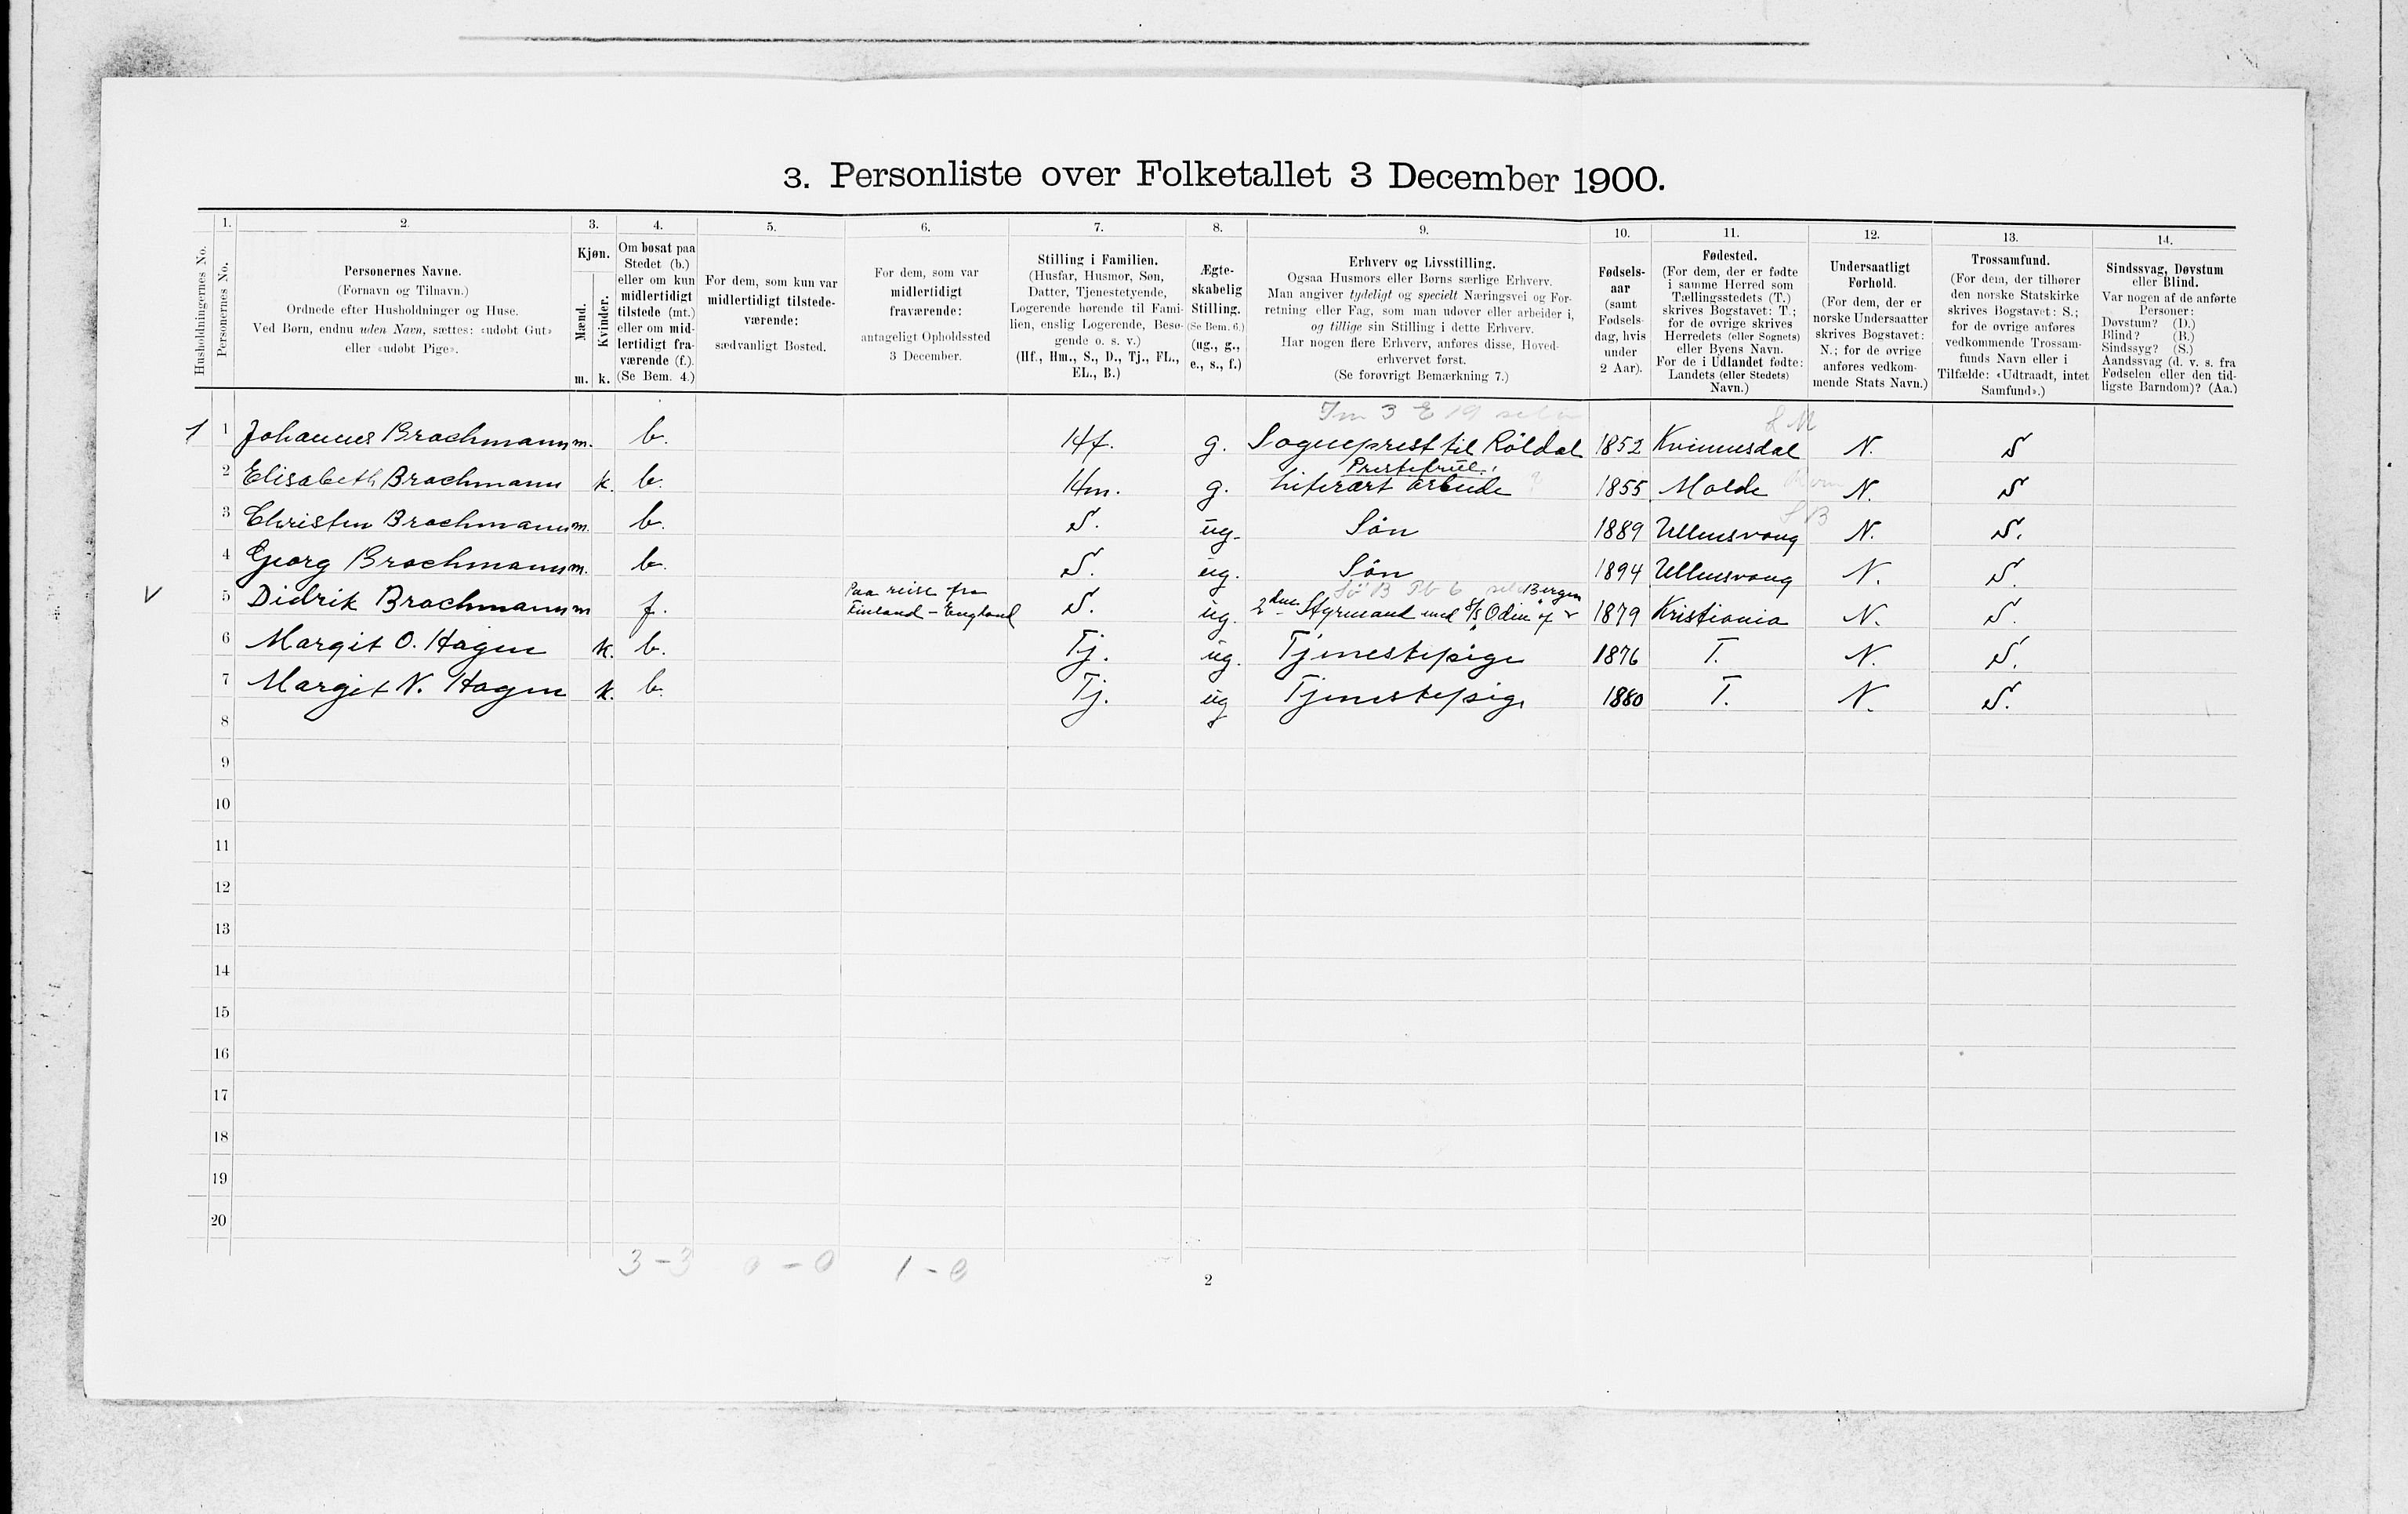 3. Personliste over Folketallet 3 December 1900.
Husholdningernes No.
1.
Personernes No.
2.
Personernes Navne.
(Fornavn og Tilnavn.)
Ordnede efter Husholdninger og Huse.
Ved Børn, endnu uden Navn, sættes: «udøbt Gut»
eller «udøbt Pige».
3.
Kjøn.
Mænd.
Kvinder.
m. k.
4.
Om bosat paa
Stedet (b.)
eller om kun
midlertidigt
tilstede (mt.)
eller om mid-
lertidigt fra-
værende (f.).
(Se Bem. 4.)
5.
For dem, som kun var
midlertidigt tilstede-
værende:
sædvanligt Bosted.
6.
For dem, som var
midlertidigt
fraværende:
antageligt Opholdssted
3 December.
7.
Stilling i Familien.
(Husfar, Husmor, Søn,
Datter, Tjenestetyende,
Logerende hørende til Fami-
lien, enslig Logerende, Besø-
gende o. s. v.)
(Hf., Hm., S., D., Tj., FL.,
EL., B.)
8.
Ægte-
skabelig
Stilling.
(Se Bem. 6.)
(ug., g.,
e., s., f.)
9.
Erhverv og Livsstilling.
Ogsaa Husmors eller Børns særlige Erhverv.
Man angiver tydeligt og specielt Næringsvei og For-
retning eller Fag, som man udøver eller arbeider i,
og tillige sin Stilling i dette Erhverv.
Har nogen flere Erhverv, anføres disse, Hoved-
erhvervet først.
(Se forøvrigt Bemærkning 7.)
10.
Fødsels-
aar
(samt
Fødsels-
dag, hvis
under
2 Aar).
11.
Fødested.
(For dem, der er fødte
i samme Herred som
Tællingsstedets (T.)
skrives Bogstavet: T.;
for de øvrige skrives
Herredets (eller Sognets)
eller Byens Navn.
For de i Udlandet fødte:
Landets (eller Stedets)
Navn.)
12.
Undersaatligt
Forhold.
(For dem, der er
norske Undersaatter
skrives Bogstavet:
N.; for de øvrige
anføres vedkom-
mende Stats Navn.)
13.
Trossamfund.
(For dem, der tilhører
den norske Statskirke
skrives Bogstavet: S.;
for de øvrige anføres
vedkommende Trossam-
funds Navn eller i
Tilfælde: «Udtraadt, intet
Samfund».)
14.
Sindssvag, Døvstum
eller Blind.
Var nogen af de anførte
Personer:
Døvstum? (D.)
Blind? (B.)
Sindssyg? (S.)
Aandssvag (d. v. s. fra
Fødselen eller den tid-
ligste Barndom)? (Aa.)
1 1 Johannes Brochmann m. b. Hf. g. Sogneprest til Röldal 1852 Kvinnesdal N. S
Prestefrue.
2 Elisabeth Brochmann k. b. Hm. g. Literært arbeide 1855 Molde N. S
3 Christen Brochmann m. b. S. ug. Sön 1889 Ullensvang N. S.
4 Georg Brochmann m. b. S. ug. Sön 1894 Ullensvang N. S.
Paa reise fra Bergen
v 5 Didrik Brochmann m f. Finland - England S. ug. 2den Styrmand med S/S Odin af 1879 Kristiania N. S.
6 Margit O. Hagen k. b. Tj. ug. Tjenestepige 1876 T. N. S.
7 Margit N. Hagen k. b. Tj. ug Tjenestepige 1880 T. N. S.
8
9
10
11
12
13
14
15
16
17
18
19
20
3 - 3 0 - 0 1 - 0
2